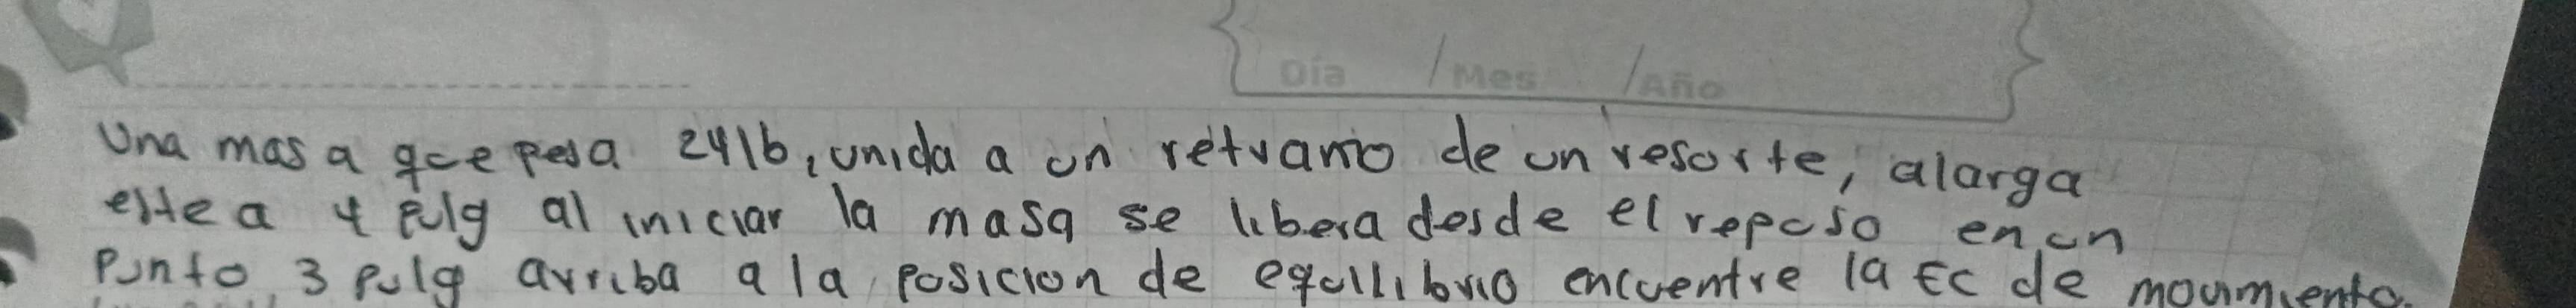 Día / Mes / Año
Una mas a que pesa 24lb, unida a un retramo de un resorte, alarga
este a 4 pulg al iniciar la masa se libera desde el reposo en un
Punto 3 pulg arriba a la posicion de equilibrio encuentre la Ec de movimiento.